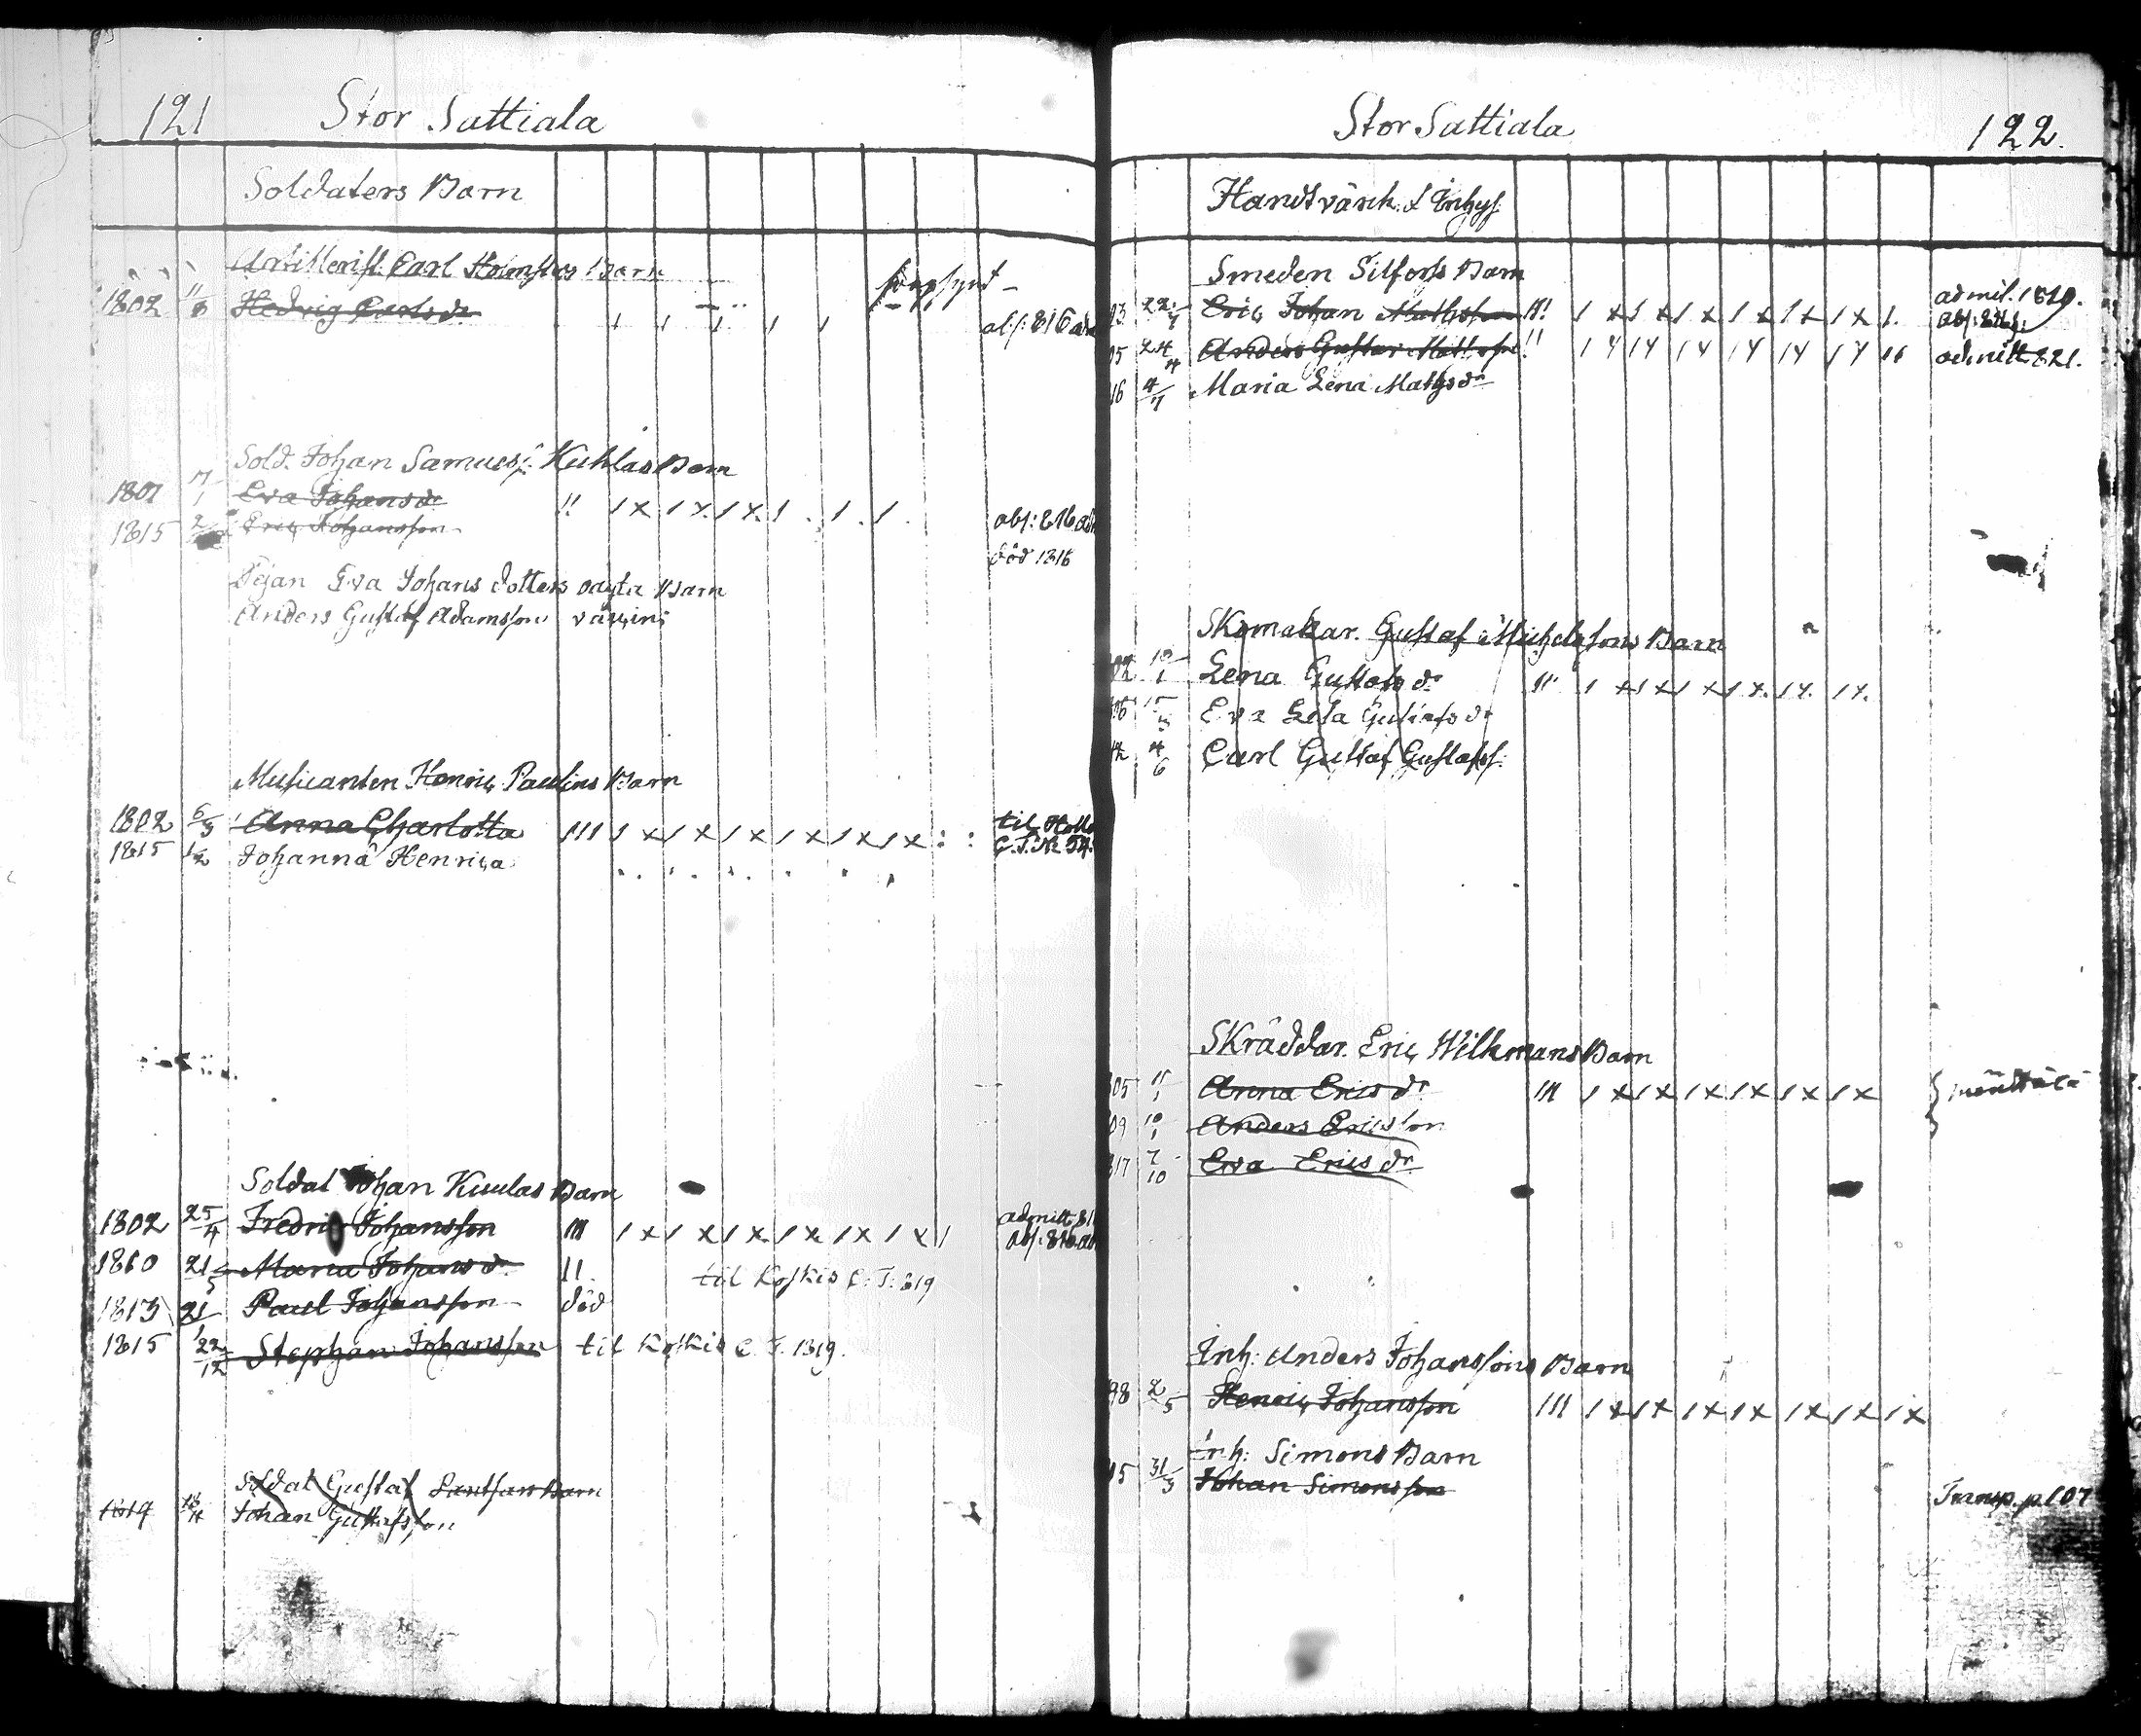 121 Stor Sattiala
Soldaters Barn
Artillerist. Carl Holmstns Barn
1802 11/8 Hedvig Carlsdr abs: 816 adm
Sold. Johan Samuelss: Kuhlas Barn
1801 17/1 Eva Johansdr " / x / x. / x. / . / . / . abs: 816 adm
1815 2 Eric Johansson död 1816
Pigan Eva Johans dotters oägta Barn
Anders Gustaf Adamsson vaccin:
Musicanten Henric Paulins Barn
1802 6/3 Anna Charlotta III / x / x / x / x / x / x : : til Hollo
C.T. № 54.
1815 1/2 Johanna Henrica
Soldat Johan Kuulas Barn
1802 25/4 Fredric Johansson III / x / x / x / x / x / x / admitt. 81
abs: 816 adm
1810 21/5 Maria Johansdr II. til Koskis C. T. 819
1813 21/1 Paul Johansson död
1815 22/12 Stephan Johansson til Koskis C. T. 1819.
Soldat Gustaf Barn
18/4 Johan Gustafsson
Stor Sattiala 122.
Handtvärck. & Inhys:
Smeden Silfors Barn
03 22/1 Eric Johan Mathsson III! / x / x / x / x / x / x / admit. 1819.
05 24/4 Anders Gustav Mattsson !! admitt 821.
16 4/7 Maria Lena Mathsdr
Skomakar. Gustaf Michelssons Barn
02 10/1 Lena Gustafsdr III / x / x / x / x. / x. / x.
Eva Lisa Gustafsdr
4/6 Carl Gustaf Gustafss:
Skräddar. Eric Wilkmans Barn
805 11/1 Anna Ericsdr III / x / x / x / x / x / x
09 10/1 Anders Ericsson
817 7/10 Eva Ericsdr
Inh: Anders Johanssons Barn
98 2/5 Henric Johansson III / x / x / x / x / x / x / x
Inh: Simons Barn
15 31/3 Johan Simonsson Transp. p. 107